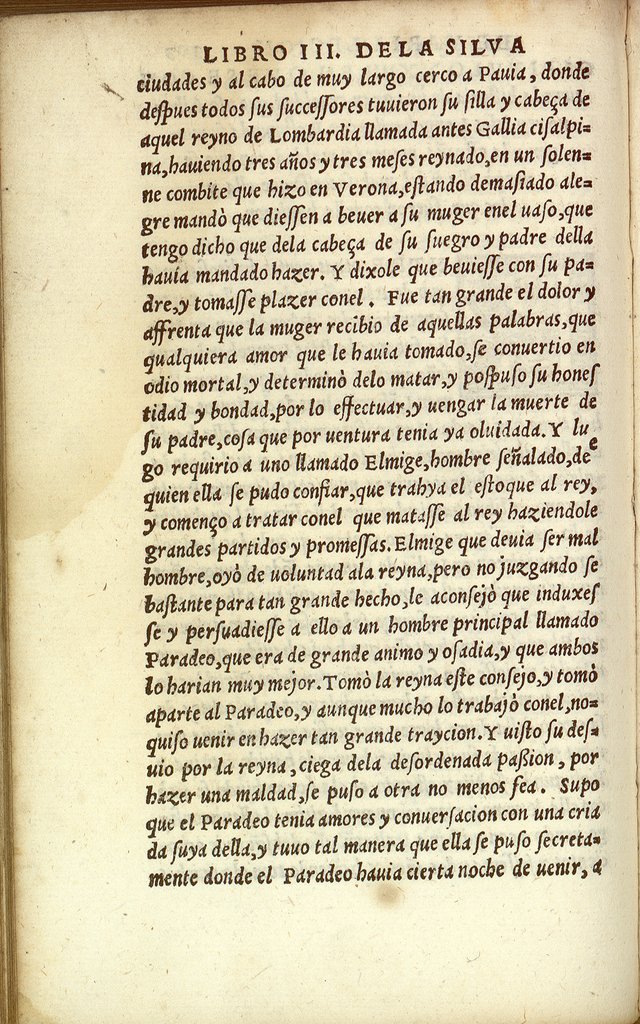 LIBRO III. DE LA SILVA
ciudades y al cabo de muy largo cerco a Pauia, donde
deſpues todos ſus ſucceſſores tuuieron ſu ſilla y cabeça de
aquel reyno de Lombardia llamada antes Gallia ciſalpi=
na,hauiendo tres años y tres meſes reynado,en un ſolen=
ne combite que hizo en Verona,eſtando demaſiado ale=
gre mandò que dieſſen a beuer a ſu muger enel uaſo,que
tengo dicho que dela cabeça de ſu ſuegro y padre della
hauia mandado hazer. Y dixole que beuieſſe con ſu pa=
dre,y tomaſſe plazer conel . Fue tan grande el dolor y
affrenta que la muger recibio de aquellas palabras,que
qualquiera amor que le hauia tomado,ſe conuertio en
odio mortal,y determinò delo matar,y poſpuſo ſu honeſ
tidad y bondad,por lo effectuar,y uengar la muerte de
ſu padre,coſa que por uentura tenia ya oluidada. Y lue
go requirio a uno llamado Elmige,hombre ſeñalado,de
quien ella ſe pudo confiar,que trahya el eſtoque al rey,
y començo a tratar conel que mataſſe al rey haziendole
grandes partidos y promeſſas. Elmige que deuia ſer mal
hombre,oyò de uoluntad ala reyna,pero no juzgando ſe
baſtante para tan grande hecho,le aconſejò que induxeſ
ſe y perſuadieſſe a ello a un hombre principal llamado
Paradeo,que era de grande animo y oſadia,y que ambos
lo harian muy mejor. Tomò la reyna eſte conſejo,y tomò
aparte al Paradeo,y aunque mucho lo trabajò conel,no=
quiſo uenir en hazer tan grande traycion. Y uiſto ſu deſ=
uio por la reyna , ciega dela deſordenada paßion , por
hazer una maldad,ſe puſo a otra no menos fea . Supo
que el Paradeo tenia amores y conuerſacion con una cria
da ſuya della,y tuuo tal manera que ella ſe puſo ſecreta=
mente donde el Paradeo hauia cierta noche de uenir, a